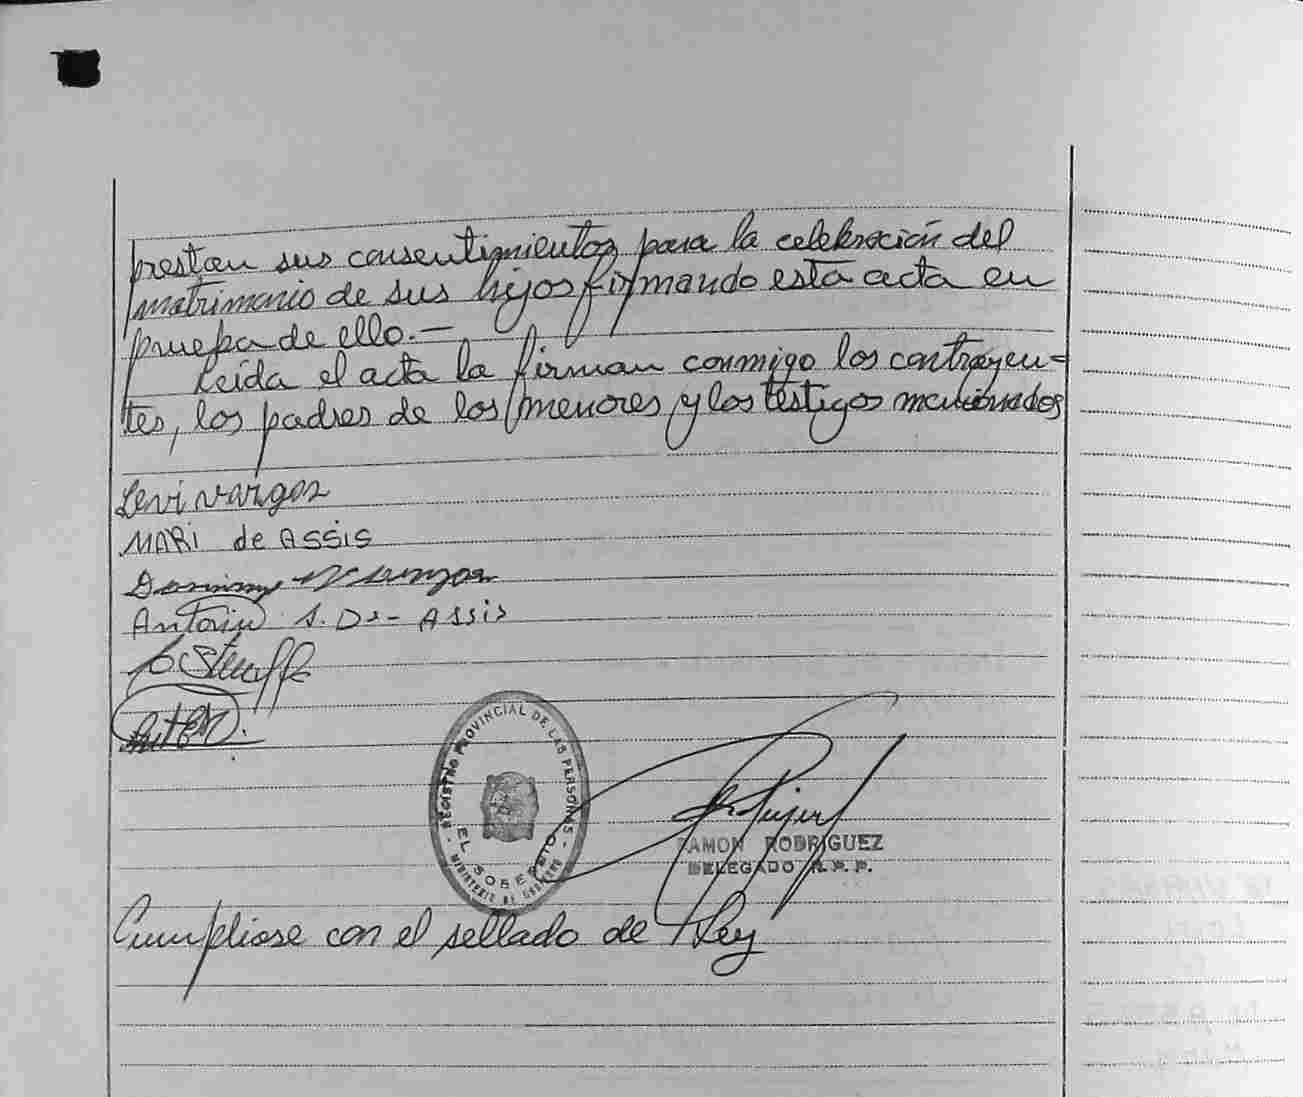 prestan sus consentimientos para la celebración del
matrimonio de sus hijos firmando esta acta en
prueba de ello.—
Leída el acta la firman conmigo los contrayen=
tes, los padres de los menores y los testigos mencionados
Levi Vargas
MARi de ASSiS
Antonio S. De - Assis
- REGISTRO PROVINCIAL DE LAS PERSONAS -
EL SOBERBIO
MINISTERIO DE GOBIERNO
RAMON RODRIGUEZ
DELEGADO R.P.P.
Cumpliose con el sellado de Ley